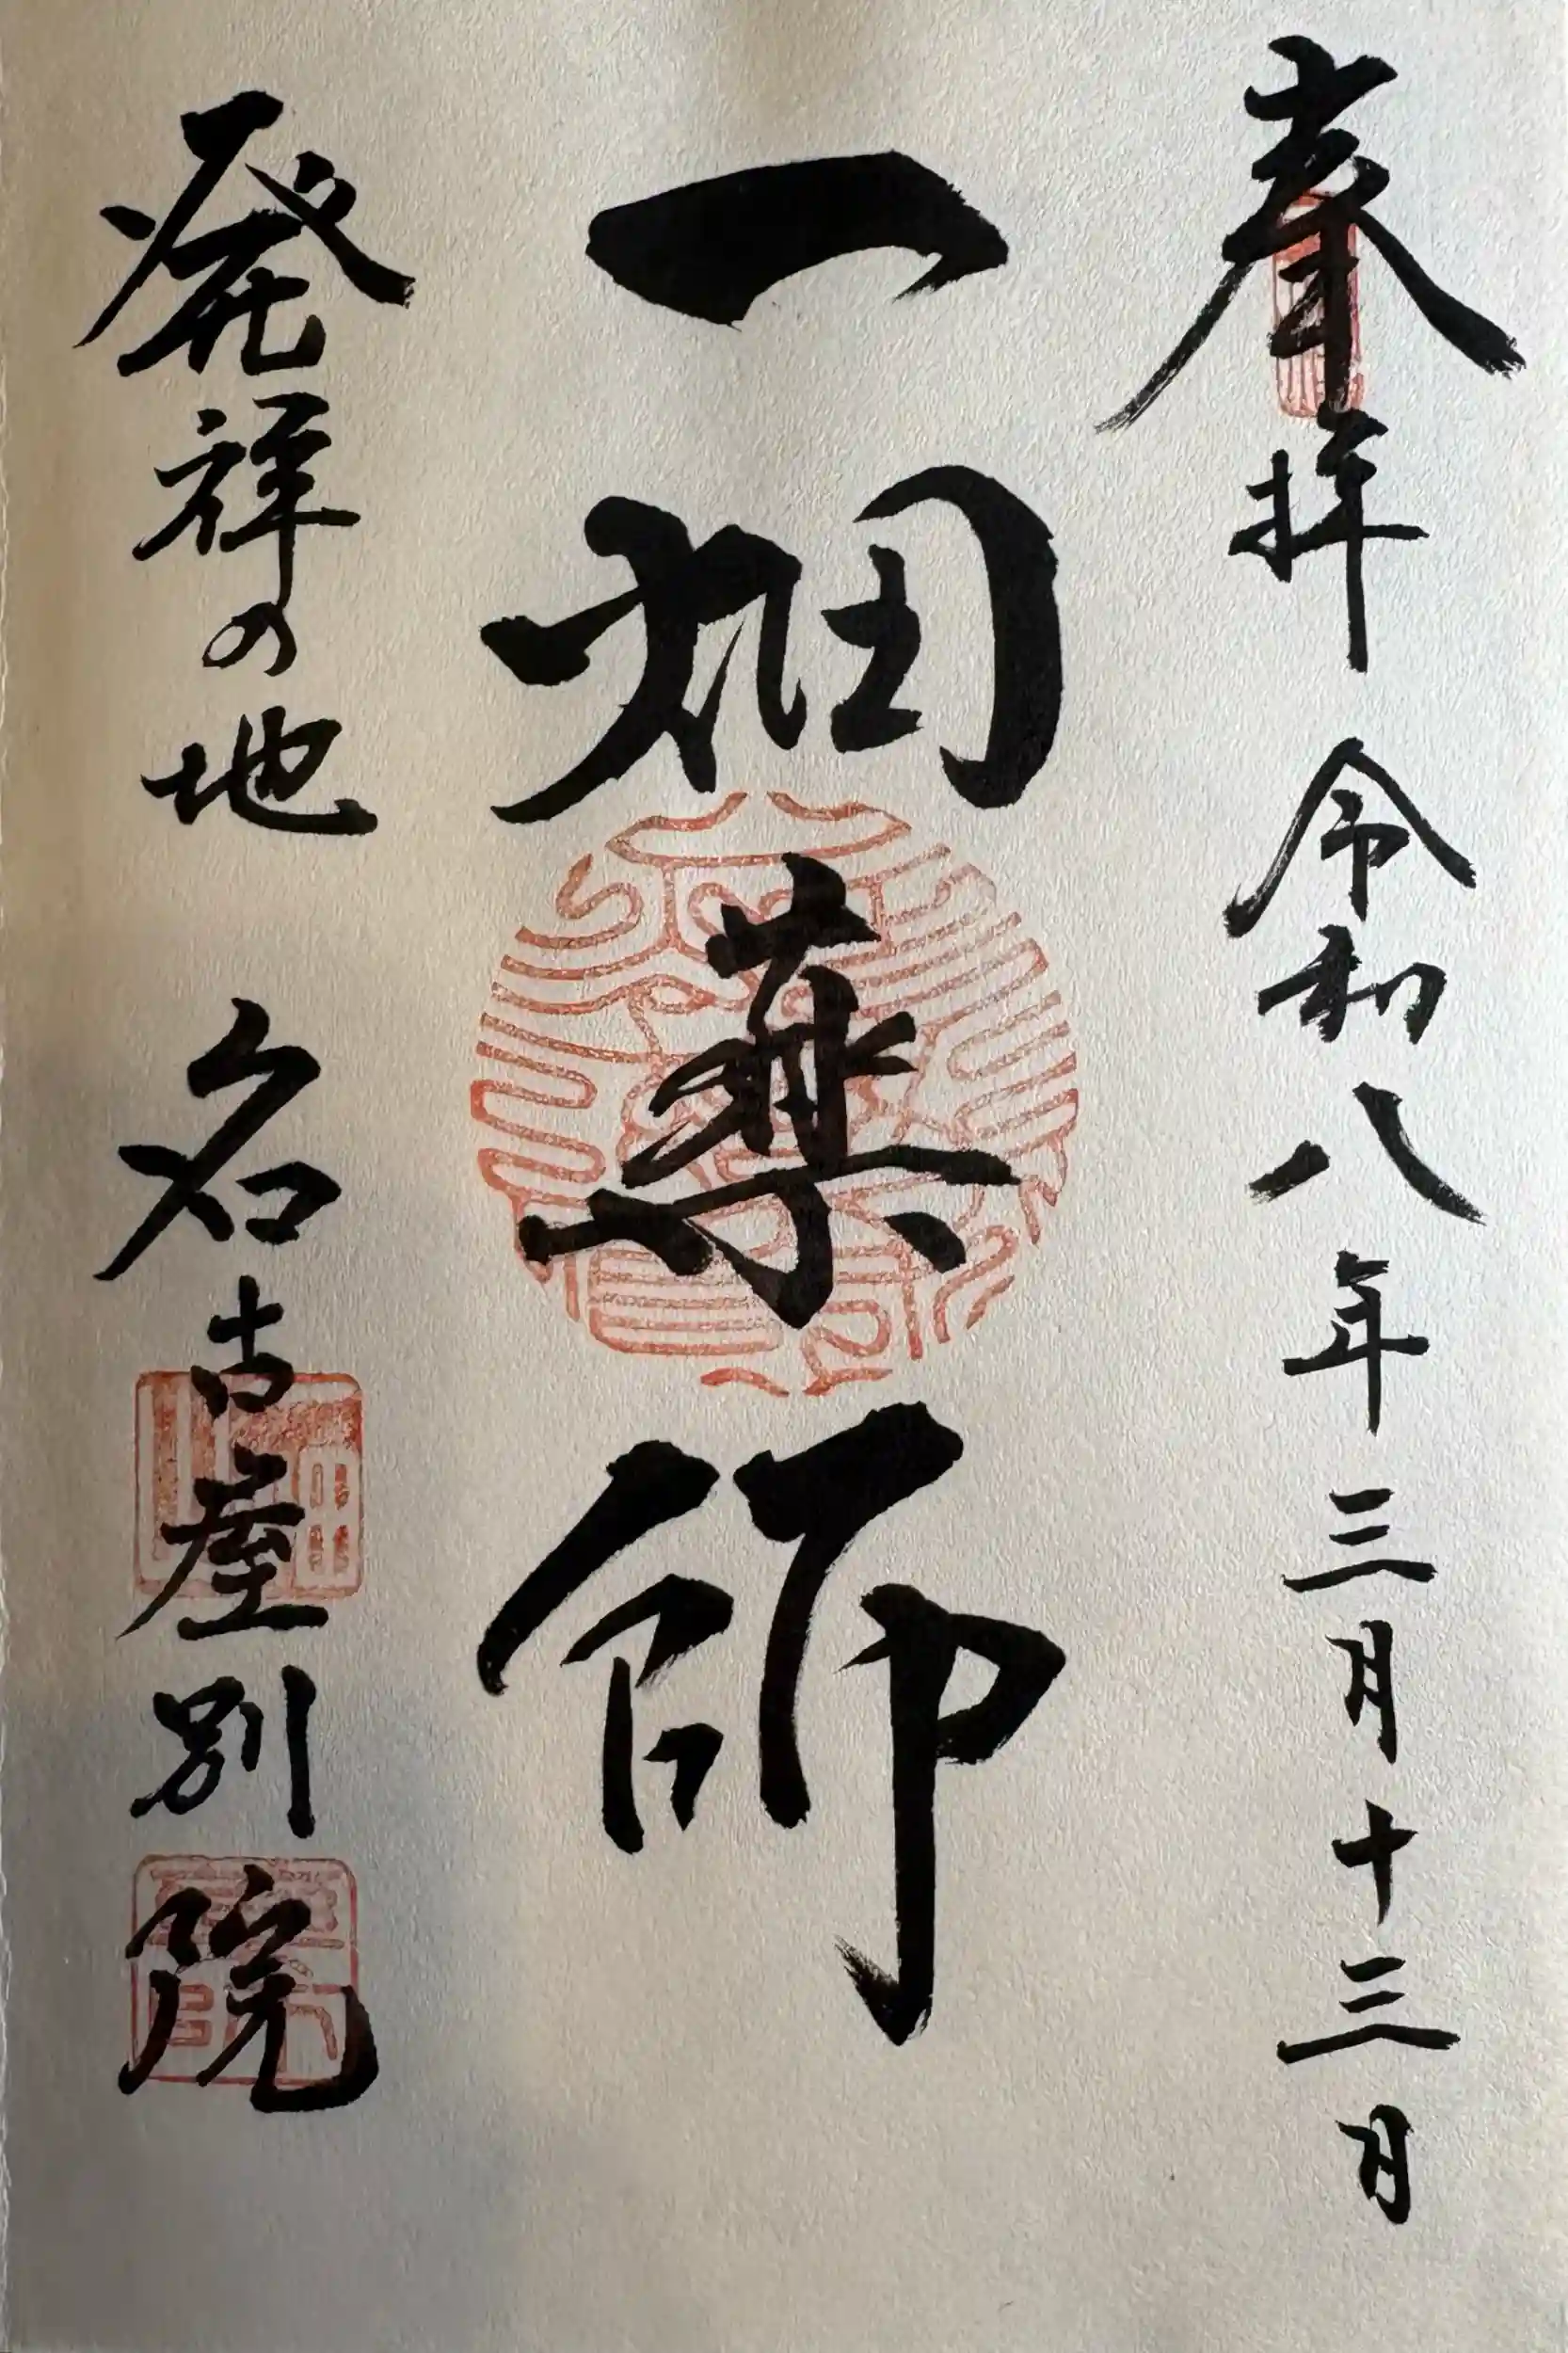 奉拝 令和八年三月十三日
一畑薬師
発祥の地 名古屋別院